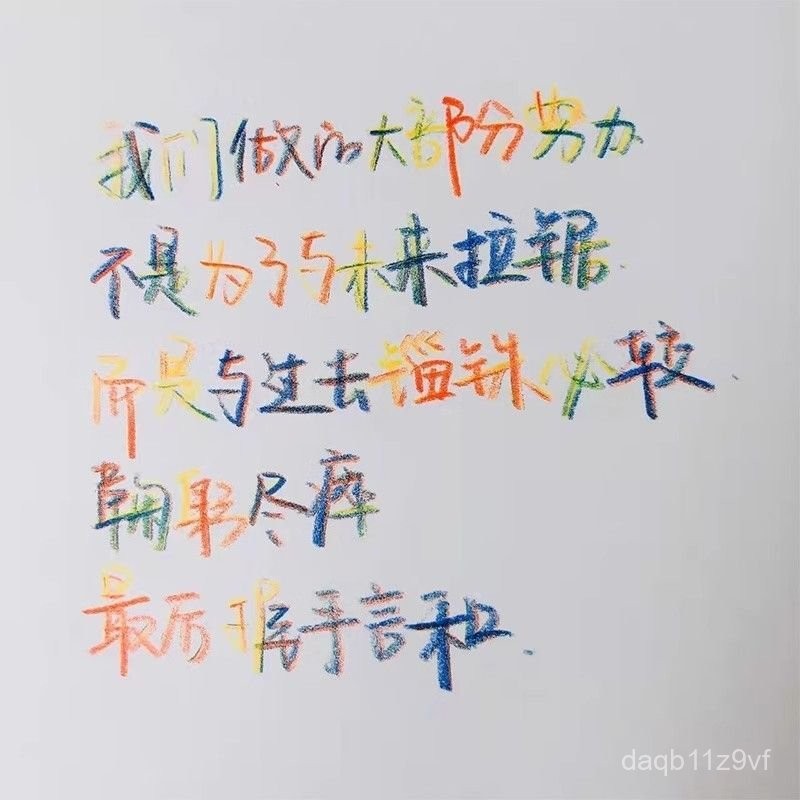 我们做的大部份努力
不是为了与未来拉锯.
而是与过去锱铢必较.
鞠躬尽瘁
最后握手言和.
daqb11z9vf